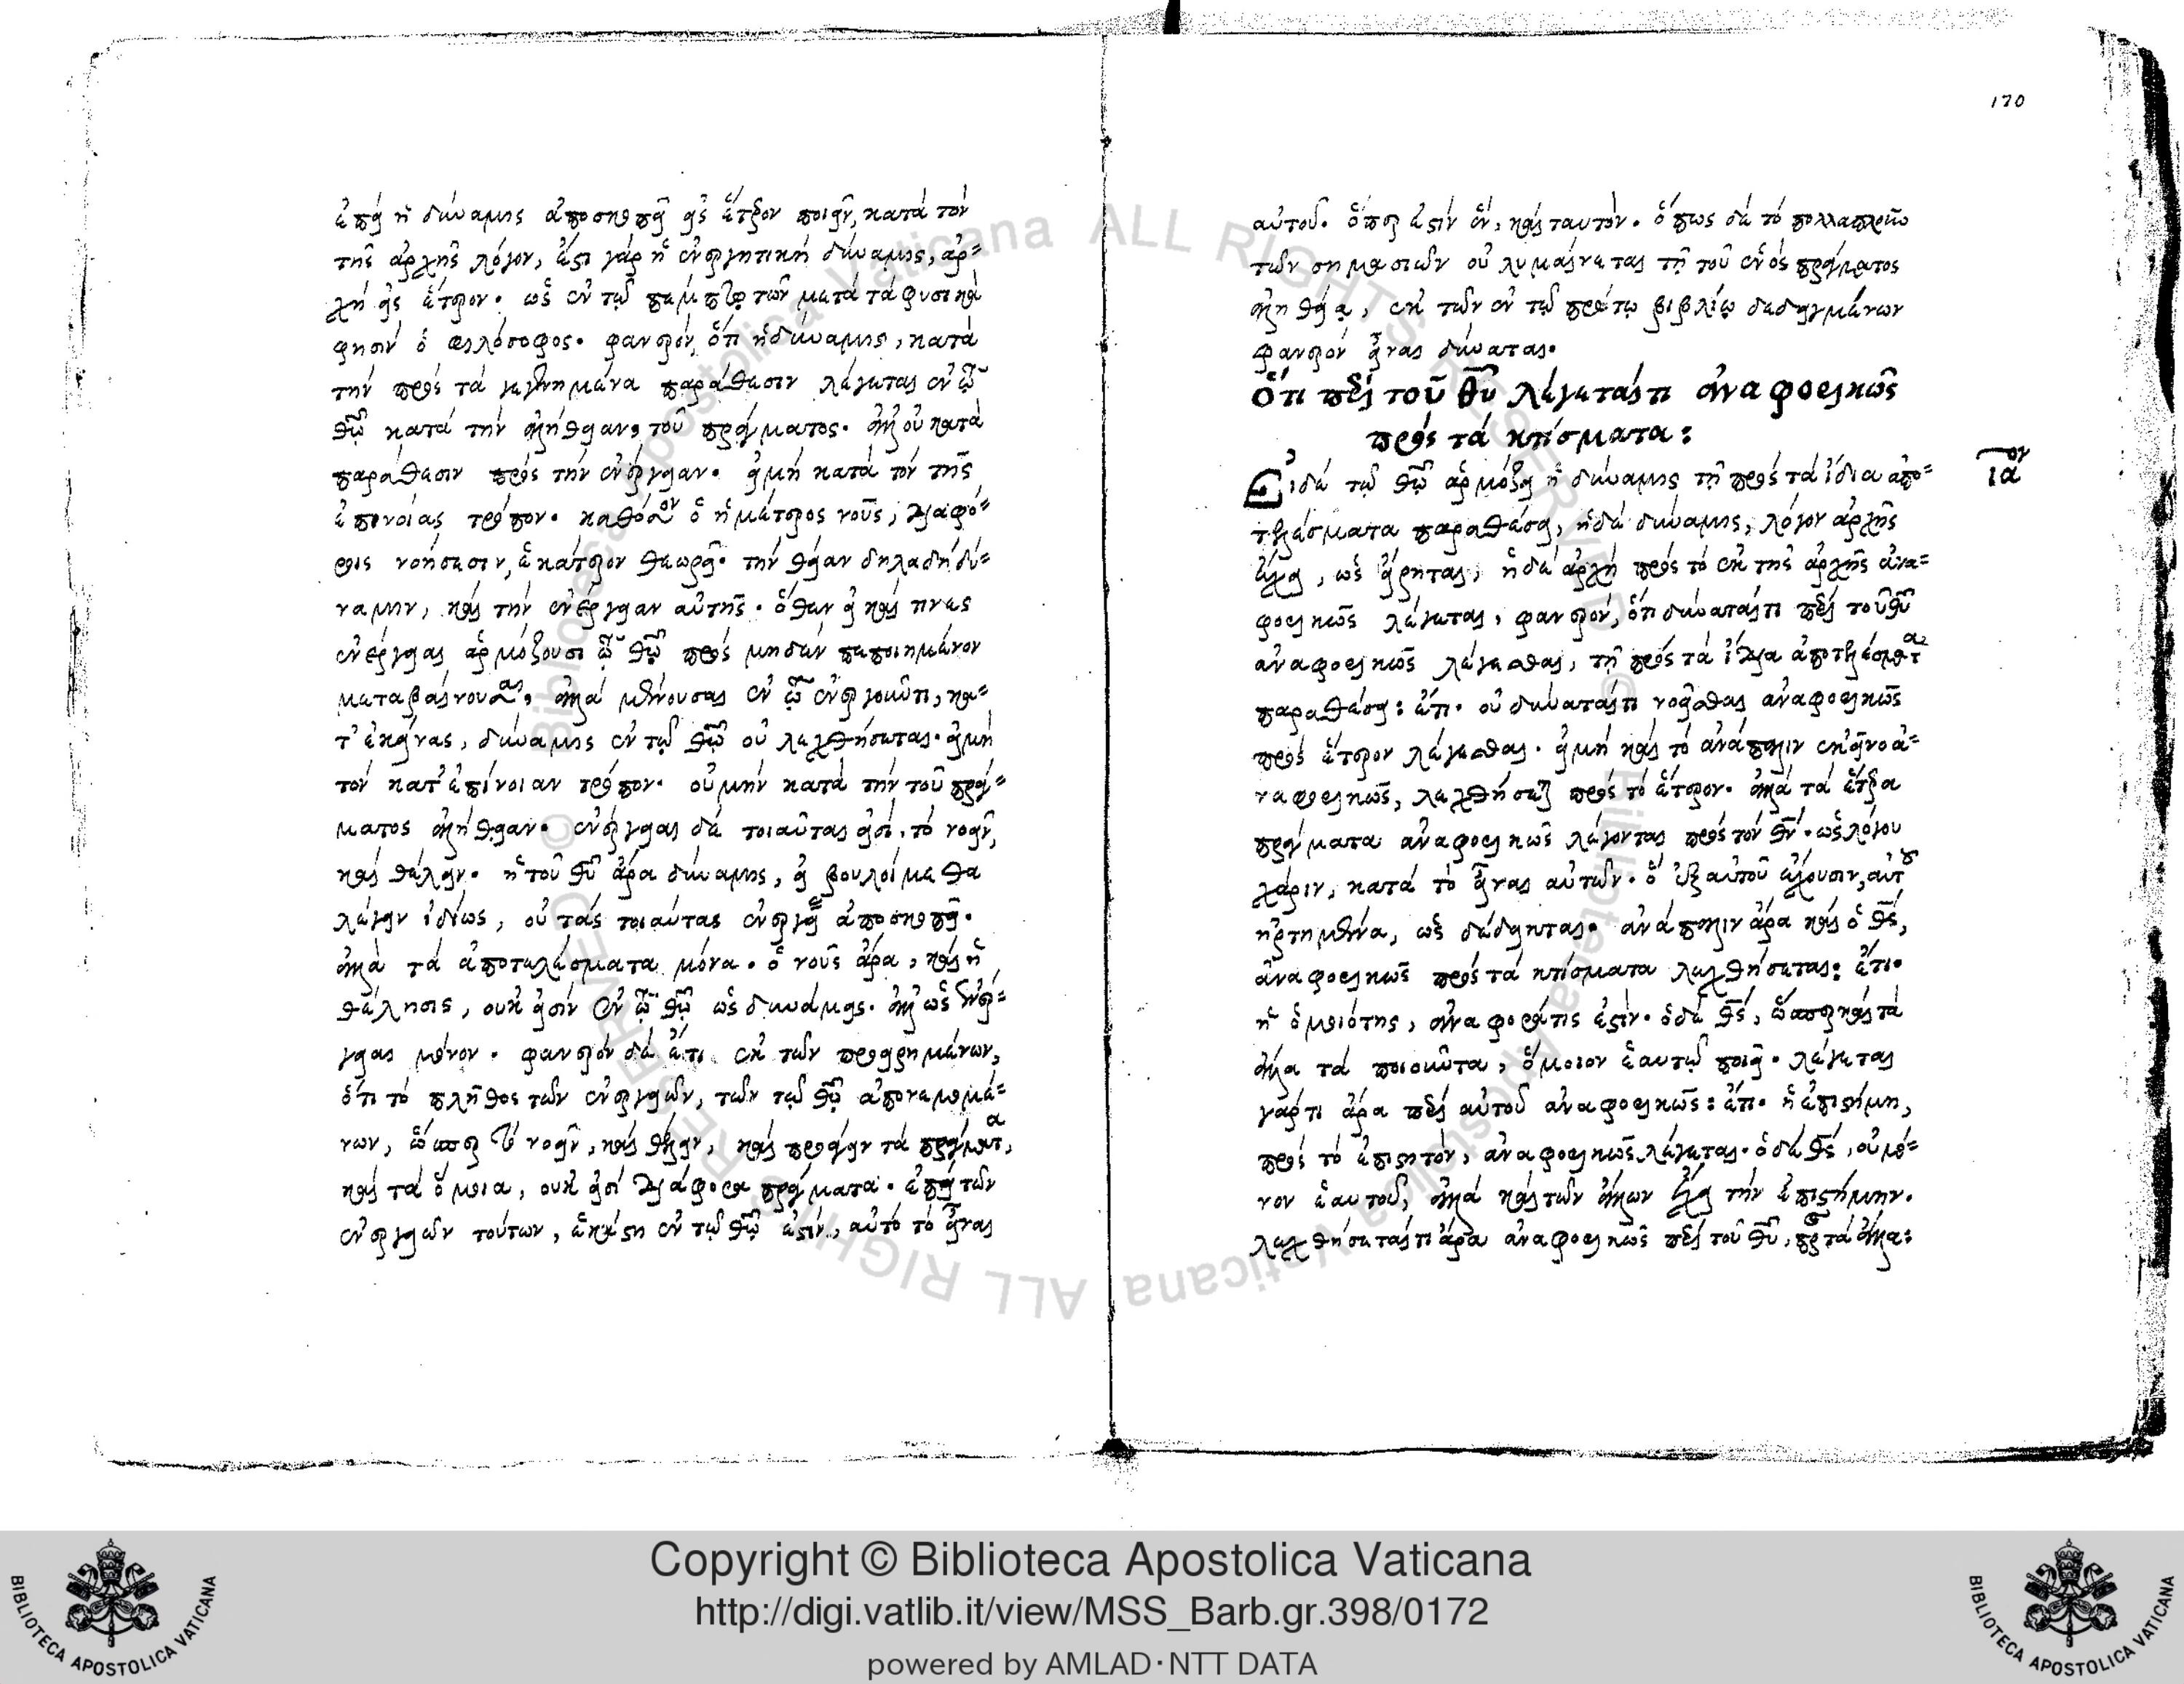 ἐπεὶ ἡ δύναμις ἀποσκοπεῖ εἰς ἕτερον ποιεῖν, κατὰ τὸν
τῆς ἀρχῆς λόγον, ἔστι γὰρ ἡ ἐνεργητικὴ δύναμις, ἀρ=
χὴ εἰς ἕτερον. ὡς ἐν τῷ πέμπτῳ τῶν μετὰ τὰ φυσικὰ
φησὶν ὁ φιλόσοφος. φανερόν, ὅτι ἡ δύναμις, κατὰ
τὴν πρὸς τὰ γεγενημένα παράθεσιν λέγεται ἐν τῷ
θῷ κατὰ τὴν ἀλήθειαν τοῦ πράγματος. ἀλλ' οὐ κατὰ
παράθεσιν πρὸς τὴν ἐνέργειαν. εἰ μὴ κατὰ τὸν τῆς
ἐπινοίας τρόπον. καθόσον ὁ ἡμέτερος νοῦς, διαφό=
ροις νοήσεσιν, ἑκάτερον θεωρεῖ. τὴν θείαν δηλαδὴ δύ=
ναμιν, καὶ τὴν ἐνέργειαν αὐτῆς. ὅθεν εἰ καί τινες
ἐνέργειαι ἁρμόζουσι τῷ θῷ πρὸς μηδὲν πεποιημένον
μεταβαίνουσαι, ἀλλὰ μένουσαι ἐν τῷ ἐνεργοῦντι, κα=
τ' ἐκείνας, δύναμις ἐν τῷ θῷ οὐ λεχθήσεται. εἰ μὴ
τὸν κατ' ἐπίνοιαν τρόπον. οὐ μὴν κατὰ τὴν τοῦ πράγ=
ματος ἀλήθειαν. ἐνέργειαι δὲ τοιαῦται εἰσί, τὸ νοεῖν,
καὶ θέλειν. ἡ τοῦ θῦ ἄρα δύναμις, εἰ βουλοίμεθα
λέγειν ἰδίως, οὐ τὰς τοιαύτας ἐνεργείας ἀποσκοπεῖ.
ἀλλὰ τὰ ἀποτελέσματα μόνα. ὁ νοῦς ἄρα, καὶ ἡ
θέλησις, οὐκ εἰσὶν ἐν τῷ θῷ ὡς δυνάμεις. ἀλλ' ὡς ἐνέρ=
γειαι μόνον. φανερὸν δὲ ἔτι ἐκ τῶν προειρημένων,
ὅτι τὸ πλῆθος τῶν ἐνεργειῶν, τῶν τῷ θῷ ἀπονεμομέ=
νων, ὥσπερ τὸ νοεῖν, καὶ θέλειν, καὶ προάγειν τὰ πράγματα,
καὶ τὰ ὅμοια, οὐκ εἰσὶ διάφορα πράγματα. ἐπεὶ τῶν
ἐνεργειῶν τούτων, ἑκάστη ἐν τῷ θῷ ἐστίν, αὐτὸ τὸ εἶναι
170
αὐτοῦ. ὅπερ ἐστὶν ἕν, καὶ ταυτόν. ὅπως δὲ τὸ πολλαπλοῦν
τῶν σημασιῶν οὐ λυμαίνεται τῇ τοῦ ἑνὸς πράγματος
ἀληθείᾳ, ἐκ τῶν ἐν τῷ πρώτῳ βιβλίῳ δεδειγμένων
φανερὸν εἶναι δύναται.
Ὅτι περὶ τοῦ θῦ λέγεταί τι ἀναφορικῶς
πρὸς τὰ κτίσματα:
ιαον
Εἰ δὲ τῷ θῷ ἁρμόζει ἡ δύναμις τῇ πρὸς τὰ ἴδια ἀπο=
τελέσματα παραθέσει, ἡ δὲ δύναμις, λόγον ἀρχῆς
ἔχει, ὡς εἴρηται, ἡ δὲ ἀρχὴ πρὸς τὸ ἐκ τῆς ἀρχῆς ἀνα=
φορικῶς λέγεται, φανερόν, ὅτι δύναταί τι περὶ τοῦ θῦ
ἀναφορικῶς λέγεσθαι, τῇ πρὸς τὰ ἴδια ἀποτελέσματα
παραθέσει: ἔτι. οὐ δύναταί τι νοεῖσθαι ἀναφορικῶς
πρὸς ἕτερον λέγεσθαι. εἰ μὴ καὶ τὸ ἀνάπαλιν ἐκεῖνο ἀ=
ναφορικῶς, λεχθήσεται πρὸς τὸ ἕτερον. ἀλλὰ τὰ ἕτερα
πράγματα ἀναφορικῶς λέγονται πρὸς τὸν θν. ὡς λόγου
χάριν, κατὰ τὸ εἶναι αὐτῶν. ὃ ἐξ αὐτοῦ ἔχουσιν, αὐτοῦ
ἠρτημένα, ὡς δέδεικται. ἀνάπαλιν ἄρα καὶ ὁ θς,
ἀναφορικῶς πρὸς τὰ κτίσματα λεχθήσεται: ἔτι.
ἡ ὁμοιότης, ἀναφορά τις ἐστίν. ὁ δὲ θς, ὥσπερ καὶ τὰ
ἄλλα τὰ ποιοῦντα, ὅμοιον ἑαυτῷ ποιεῖ. λέγεται
γάρ τι ἄρα περὶ αὐτοῦ ἀναφορικῶς: ἔτι. ἡ ἐπιστήμη,
πρὸς τὸ ἐπιστητόν, ἀναφορικῶς λέγεται. ὁ δὲ θς, οὐ μό=
νον ἑαυτοῦ, ἀλλὰ καὶ τῶν ἄλλων ἔχει τὴν ἐπιστήμην.
λεχθήσεταί τι ἄρα ἀναφορικῶς περὶ τοῦ θῦ, πρὸς τὰ ἄλλα:
Copyright © Biblioteca Apostolica Vaticana
http://digi.vatlib.it/view/MSS_Barb.gr.398/0172
powered by AMLAD·NTT DATA
BIBLIOTECA APOSTOLICA VATICANA
BIBLIOTECA APOSTOLICA VATICANA
© Biblioteca Apostolica Vaticana ALL RIGHTS RESERVED
© Biblioteca Apostolica Vaticana ALL RIGHTS RESERVED